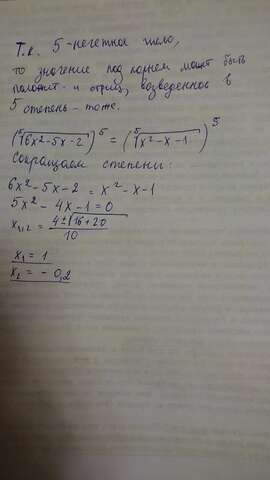 Т.к. 5 - нечетное число,
то значение под корнем может быть
полож. и отриц, возведенное в
5 степень - тоже.
(⁵√6x²-5x-2)⁵ = (⁵√x²-x-1)⁵
Сокращаем степени:
6x²-5x-2 = x²-x-1
5x²-4x-1=0
x₁,₂ = 4±√16+20 / 10
x₁ = 1
x₂ = -0,2